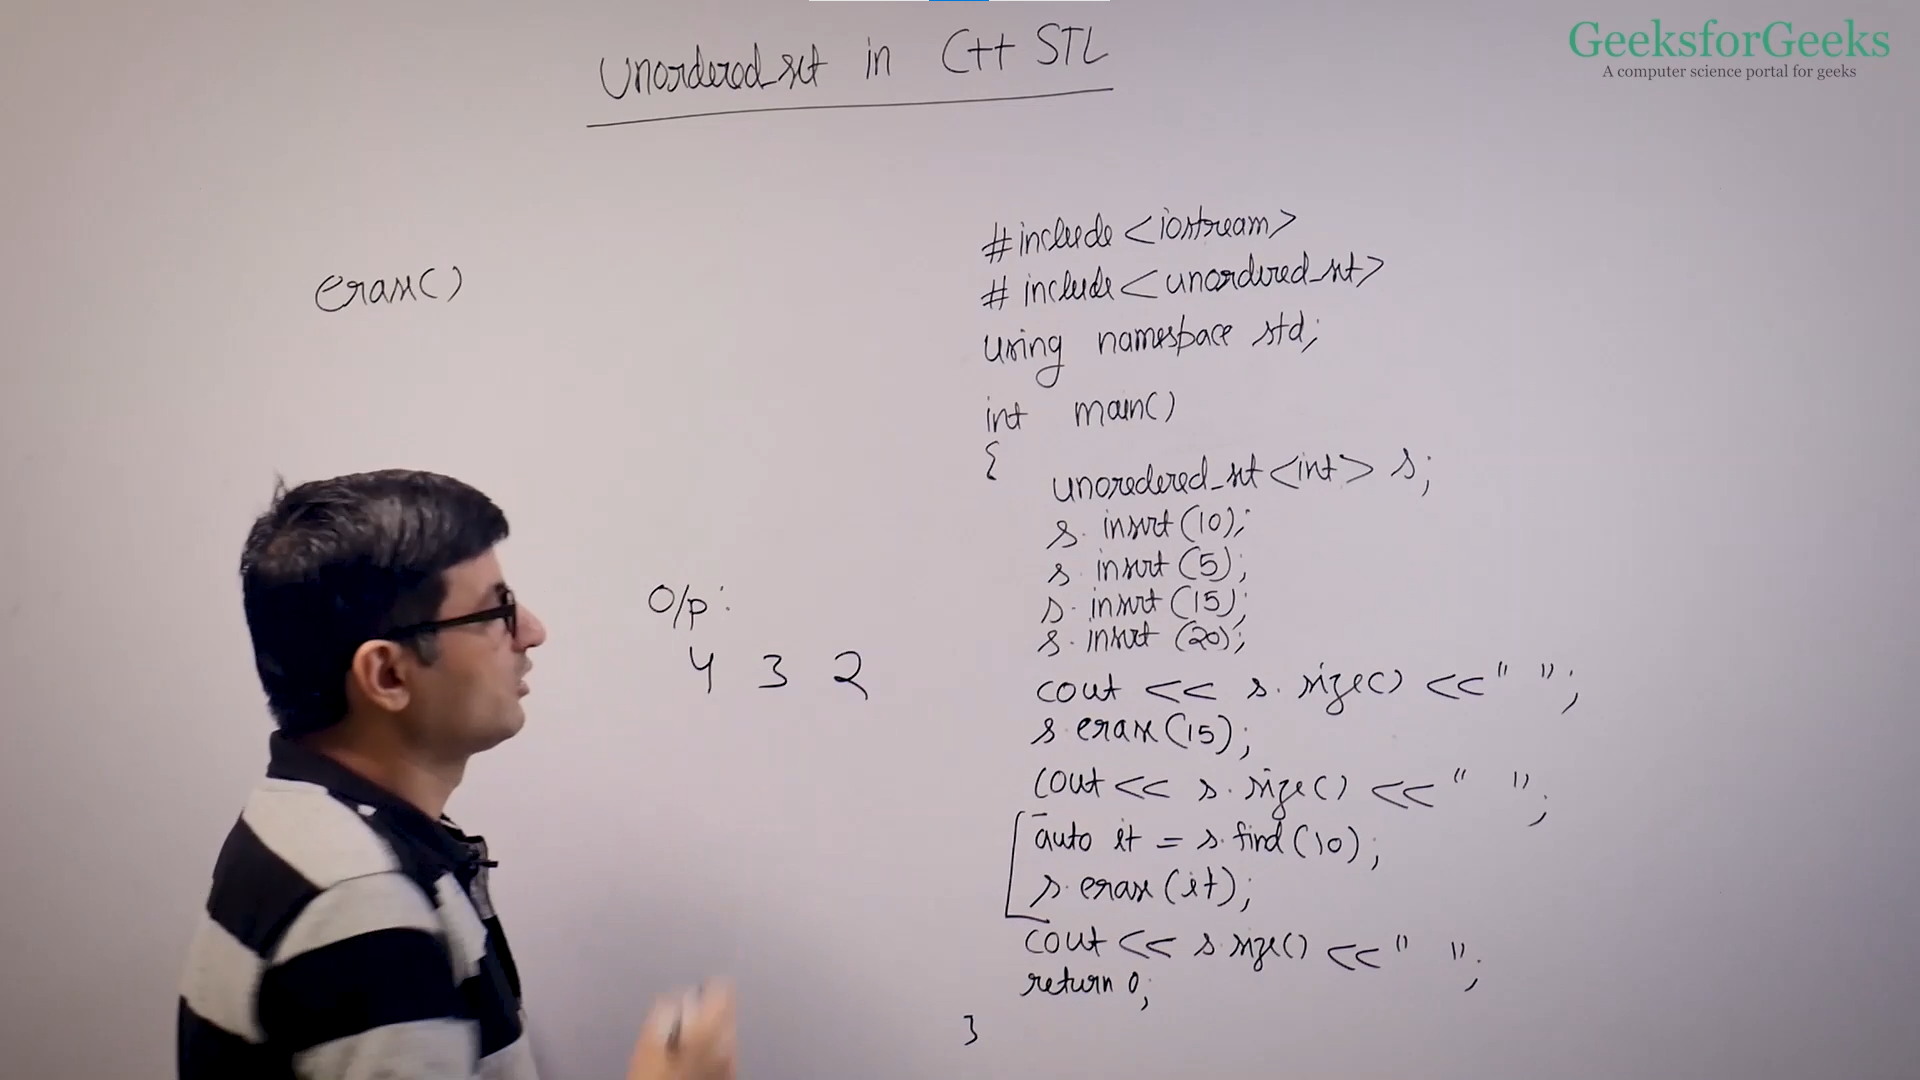 Unordered_set in C++ STL
GeeksforGeeks
A computer science portal for geeks
erase()
O/p:
4 3 2
#include <iostream>
# include <unordered_set>
using namespace std;
int main()
{
unoredered_set <int> s;
s. insert (10);
s. insert (5);
s. insert (15);
s. insert (20);
cout << s. size() <<" ";
s. erase (15);
cout << s. size() <<" ";
auto it = s. find (10);
s. erase (it);
cout << s. size() <<" ";
return 0;
}